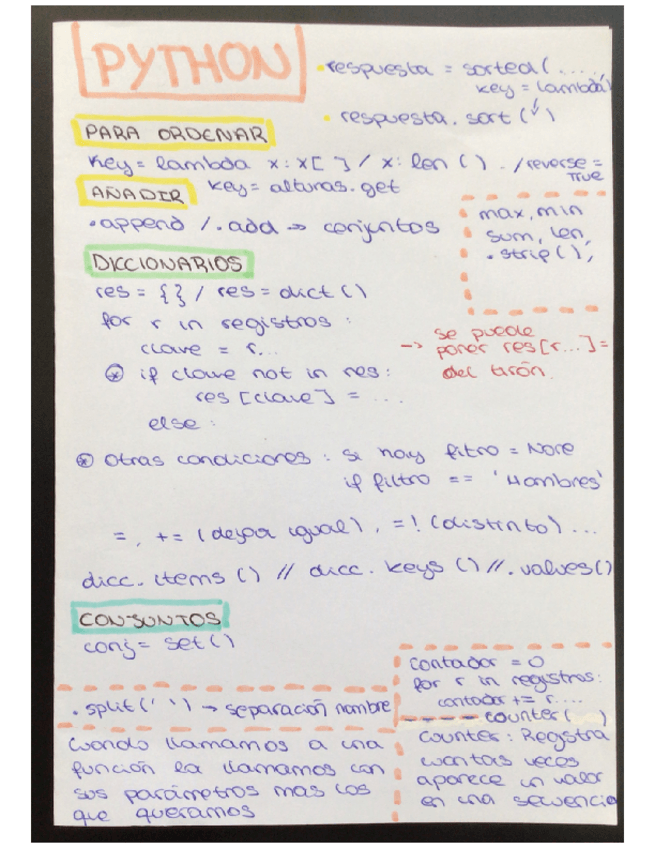 PYTHON
• respuesta = sorted(....,
key = lambda)
• respuesta. sort (✓)
PARA ORDENAR
Key = lambda x: x[ ] / x: len ( ) . /reverse =
True
AÑADIR
key = alturas.get
• append / . add → conjuntos
max, min
sum, len,
. strip( ),
DICCIONARIOS
res = { } / res = dict ( )
for r in registros :
clave = r...
⊛ if clave not in res:
res [clave] = ...
else :
→ se puede
poner res[r...] =
del tirón.
⊛ Otras condiciones : si hay filtro = None
if filtro == 'Hombres'
=, += (dejar igual), =! (distinto) ...
dicc. items ( ) // dicc. keys ( ) // .values( )
CONJUNTOS
conj = set ( )
. split(' ') → separación nombre
Cuando llamamos a una
función la llamamos con
sus parámetros mas los
que queramos
Contador = 0
for r in registros:
contador += r....
counter ( )
counter : Registra
cuantas veces
aparece un valor
en una secuencia